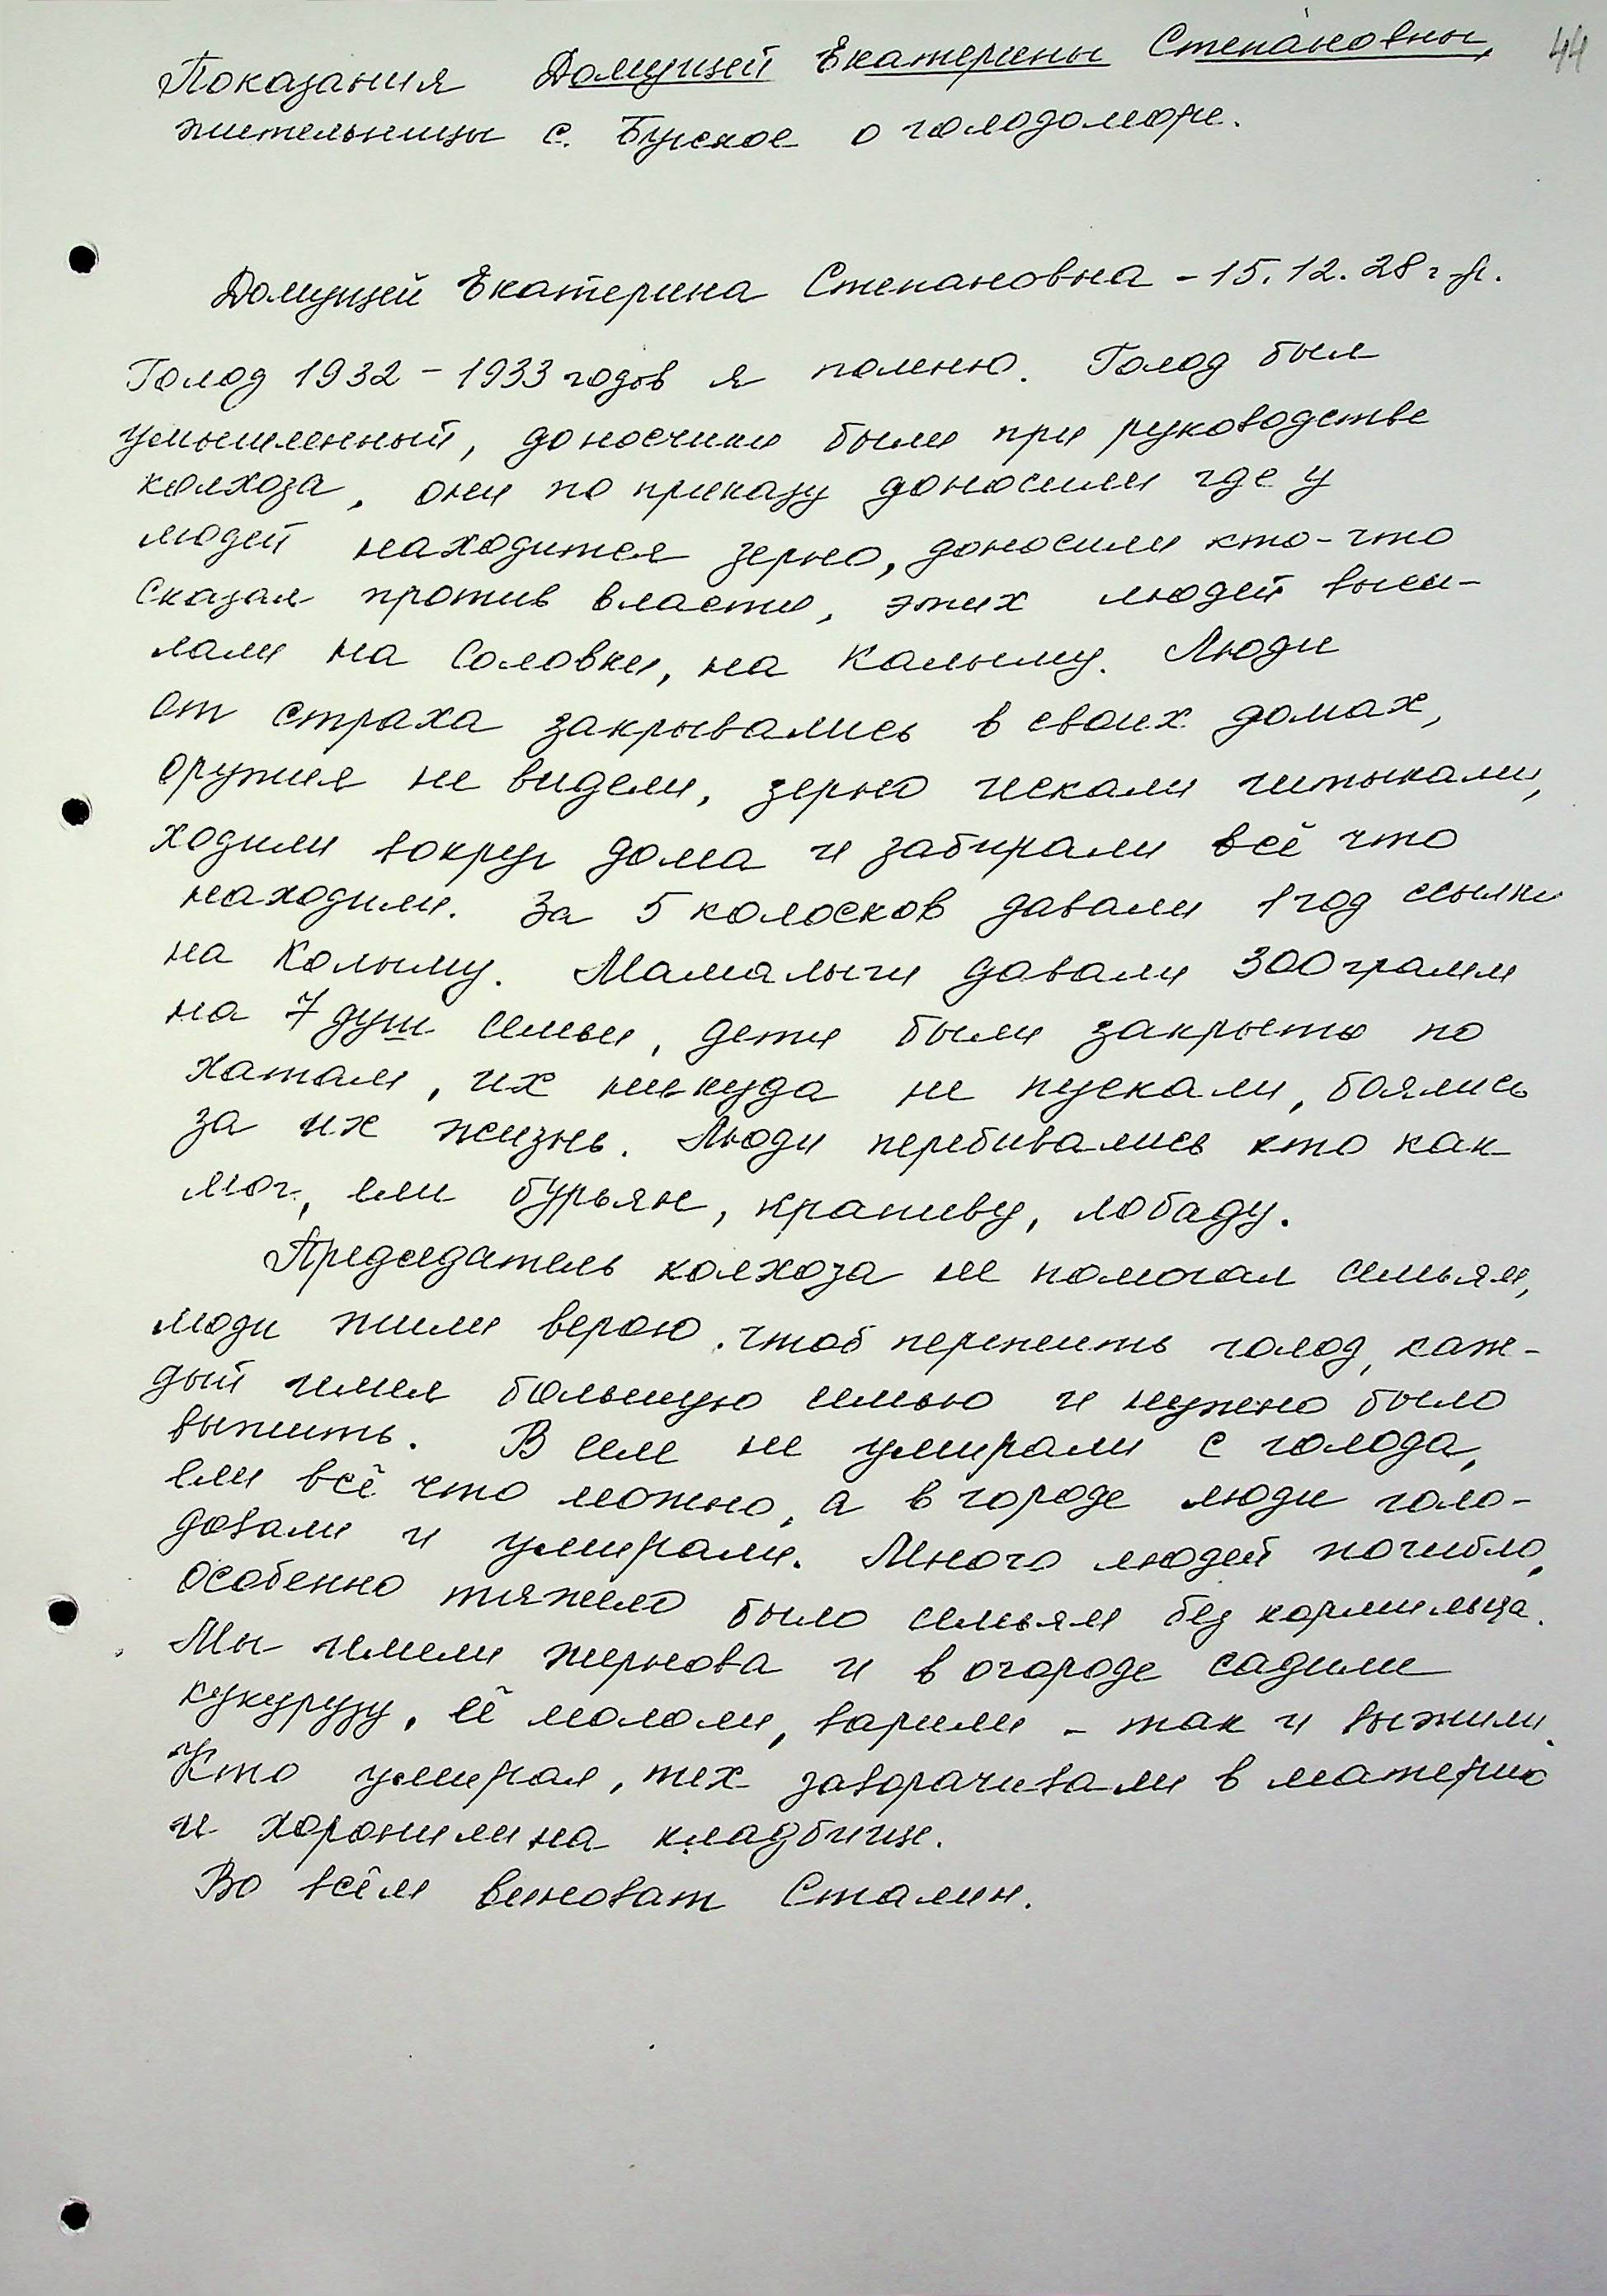 44
Показания Домущей Екатерины Степановны,
жительницы с. Бузское о голодоморе.
Домущей Екатерина Степановна - 15.12.28 г.р.
Голод 1932 - 1933 годов я помню. Голод был
умышленный, доносчики были при руководстве
колхоза, они по приказу доносили где у
людей находится зерно, доносили кто-что
сказал против власти, этих людей высы-
лали на Соловки, на Калыму. Люди
от страха закрывались в своих домах,
оружия не видели, зерно искали штыками,
ходили вокруг дома и забирали всё что
находили. За 5 колосков давали 1 год ссылки
на Колыму. Мамалыги давали 300 грамм
на 7 душ семьи, дети были закрыты по
хатам, их никуда не пускали, боялись
за их жизнь. Люди перебивались кто как
мог, ели бурьян, крапиву, лободу.
Председатель колхоза не помогал семьям,
люди жили верою, чтоб пережить голод, каж-
дый имел большую семью и нужно было
выжить. В селе не умирали с голода,
ели всё что можно, а в городе люди голо-
довали и умирали. Много людей погибло,
особенно тяжело было семьям без кормильца.
Мы имели жернова и в огороде садили
кукурузу, её мололи, варили - так и выжили.
Кто умирал, тех заворачивали в материю
и хоронили на кладбище.
Во всём виноват Сталин.